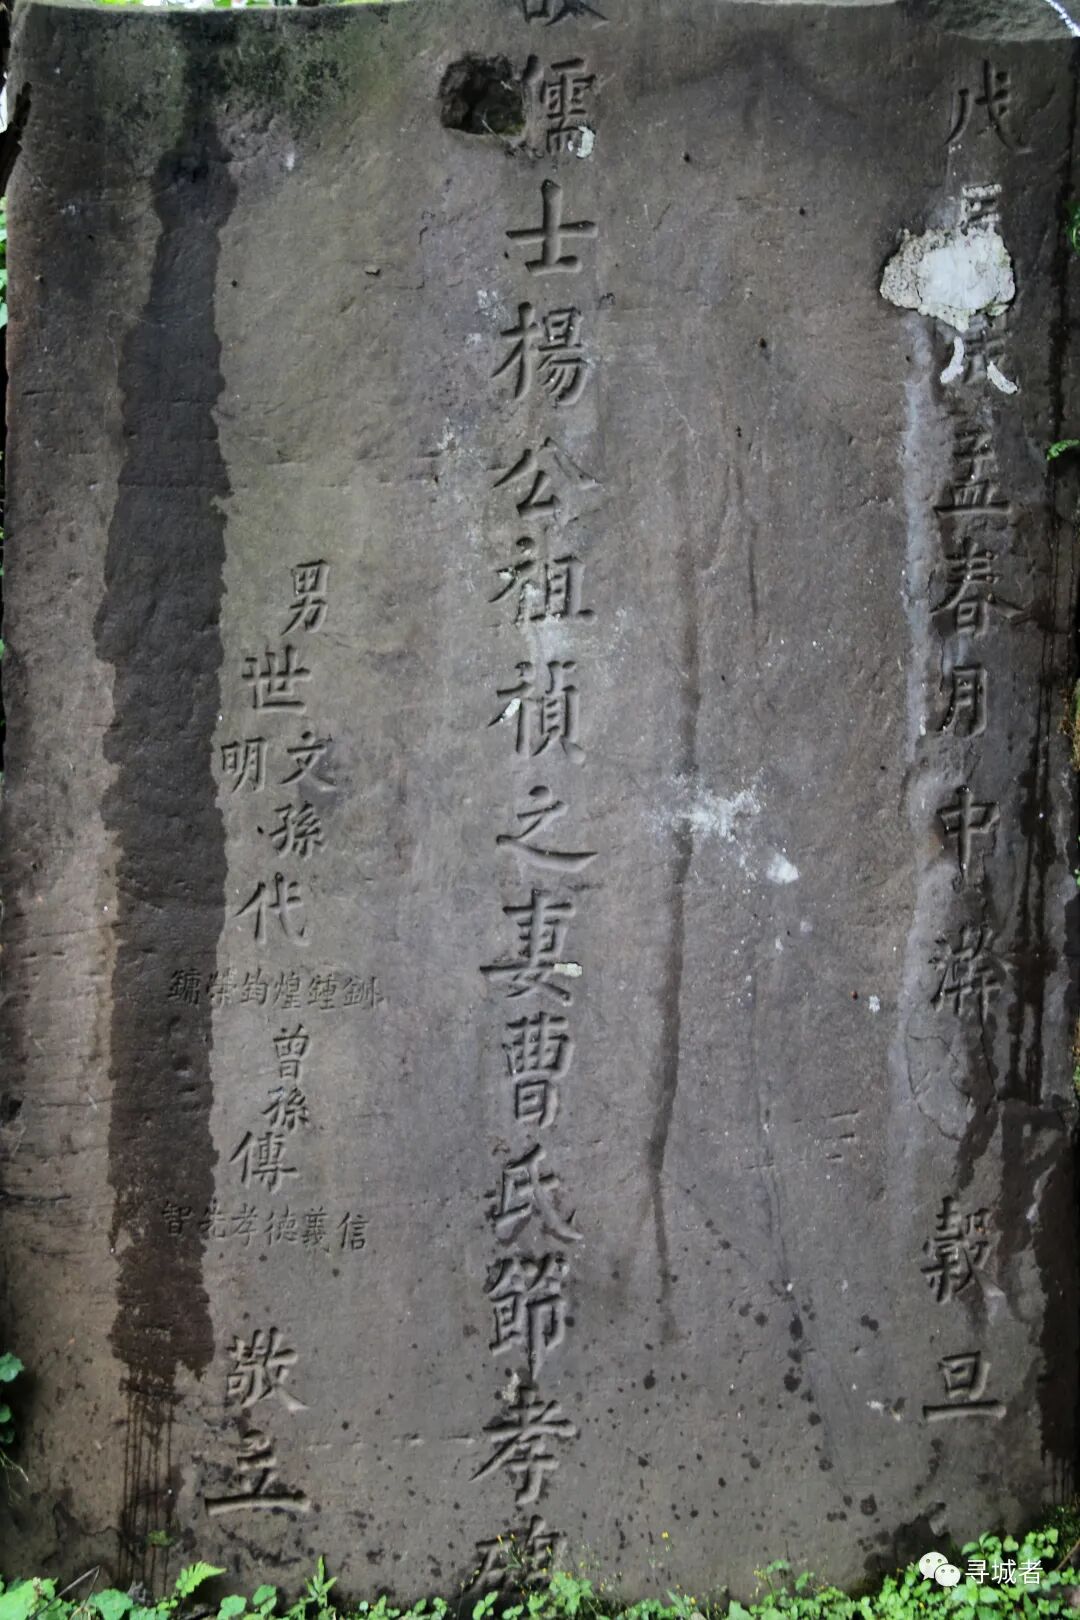 戊辰歲孟春月中澣穀旦
故儒士楊公祖禎之妻曹氏節孝碑
男世文明孫代
鍾煌鈞榮鏞
曾孫傳
信義德孝先智
敬立
寻城者